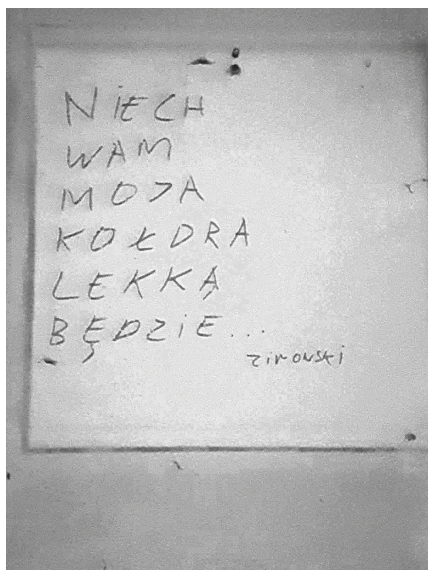 NIECH
WAM
MOJA
KOŁDRA
LEKKĄ
BĘDZIE...
zimowski